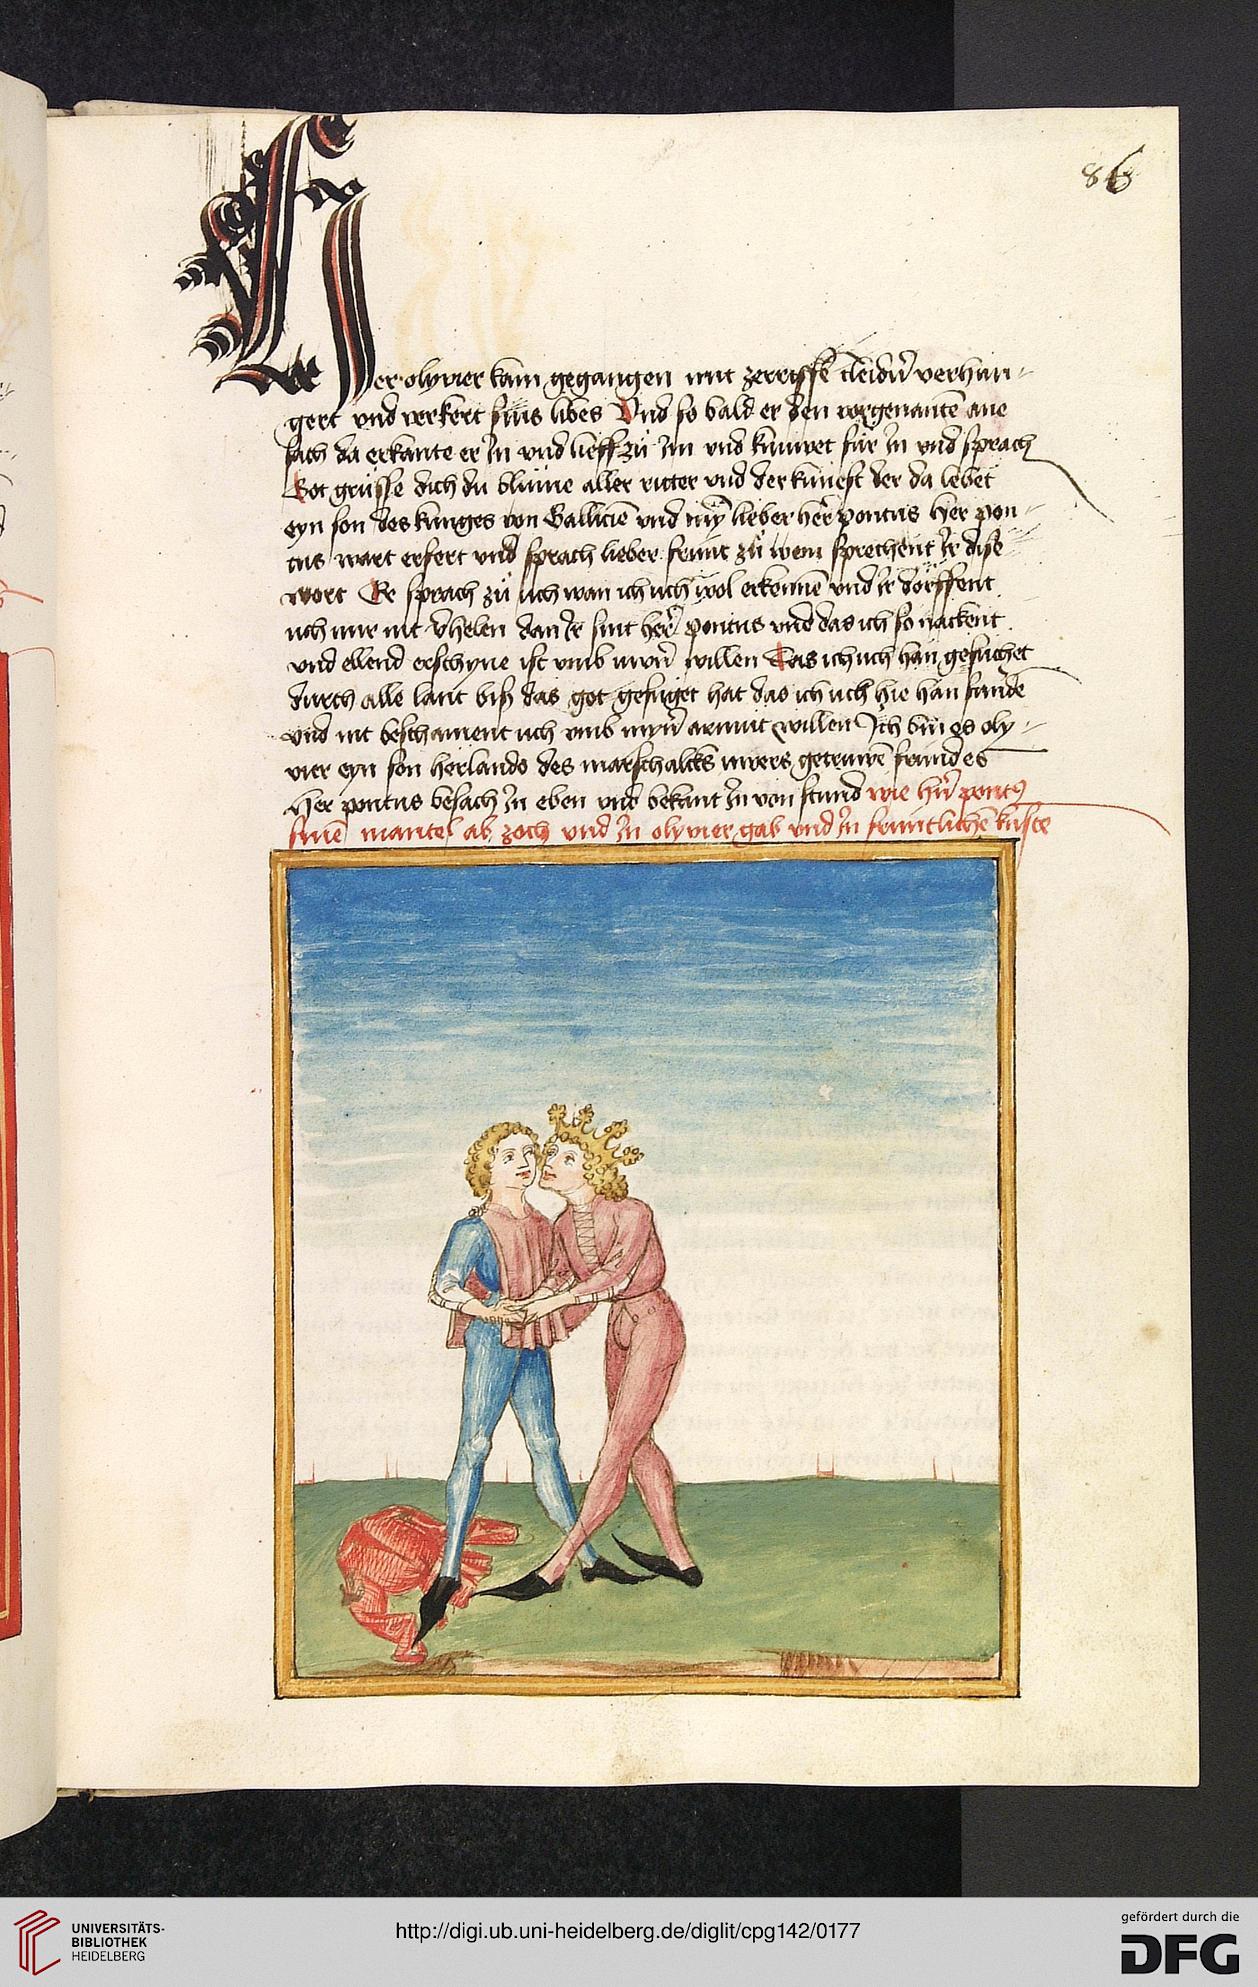 86
Her olyvier kam gegangen mit zerrisse cleidn̄ verhun-
gert vnd verkert sins libes Vnd so bald er den vorgenantē ane
sach da erkante er In vnd lieff zů Im vnd knuwet für In vnd sprach
Got grüsse dich du blůme aller ritter vnd der künest der da lebet
eyn son des kunges von Galliciē vnd mȳ lieber her pontus Her pon-
tus wart erfert vnd sprach lieber frunt zů wem sprechent Ir dise
wort Er sprach zů uch wan ich uch wol erkennē vnd Ir dörffent
uch mir nit v̄helen dan Ir sint her pontus vnd das ich so nackent
vnd ellend erschyne ist vmb uwrn̄ willen Das ich uch han gesuchet
durch alle lant biß das got gefuget hat das ich uch hie han funde
vnd nit beschament uch vmb myn̄ armut willen Ich bin es oly-
vier eyn son herlando des marschalcks uwers getruwē frundes
Her pontus besach In eben vnd bekant In von stund wie hr̄ pontꝰ
sine mantel ab zoch vnd In olyvier gab vnd In fruntlichē kuste
UNIVERSITÄTS-
BIBLIOTHEK
HEIDELBERG
http://digi.ub.uni-heidelberg.de/diglit/cpg142/0177
gefördert durch die
DFG